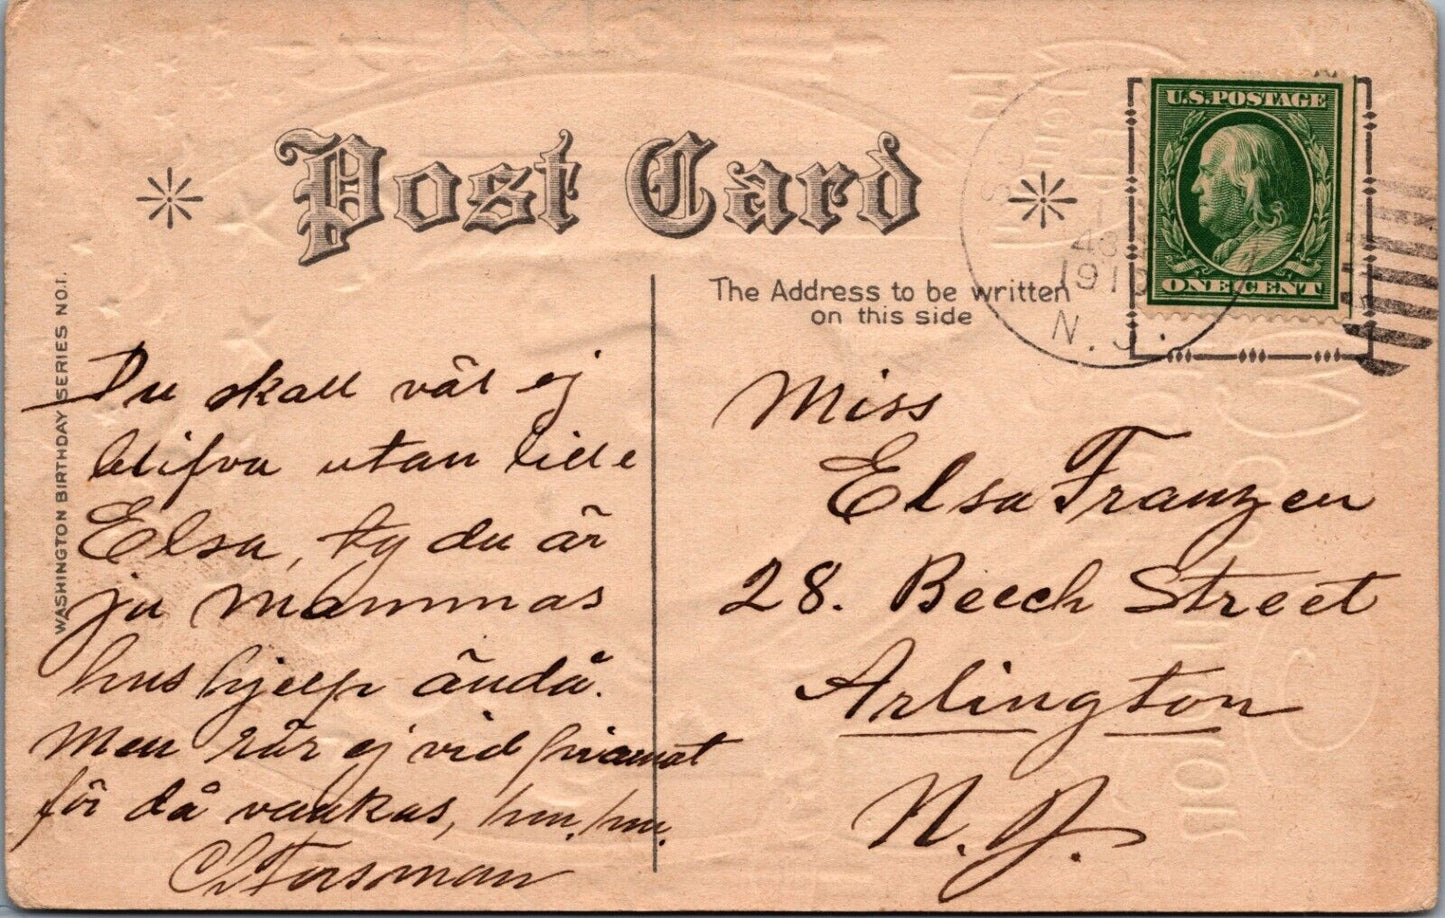 Post Card
U.S. POSTAGE
ONE CENT
1910
N.J.
The Address to be written
on this side
WASHINGTON BIRTHDAY SERIES NO.1.
Du skall väl ej
blifva utan lille
Elsa, ty du är
ju mammas
hus hjelp ändå.
Men rör ej vid pianot
för då vankas, hm, hm.
Miss
Elsa Franzen
28. Beech Street
Arlington
N.J.